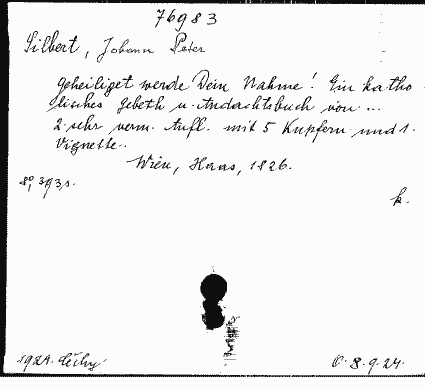 76983
Silbert, Johann Peter
Geheiliget werde Dein Nahme! Ein katho-
lisches Gebeth u. Andachtsbuch von ...
2. sehr verm. Aufl. mit 5 Kupfern und 1.
Vignette.
Wien, Haas, 1826.
8°, 393 s.
k.
1924. Čechy
8.9.24.